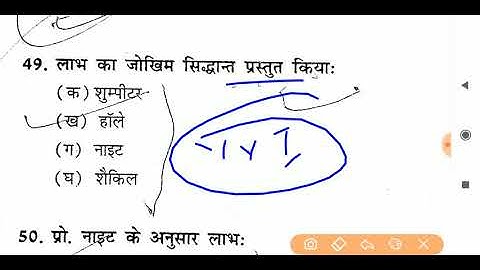 49. लाभ का जोखिम सिद्धान्त प्रस्तुत किया:
(क) शुम्पीटर
(ख) हॉले
(ग) नाइट
(घ) शैकिल
50. प्रो. नाइट के अनुसार लाभ: